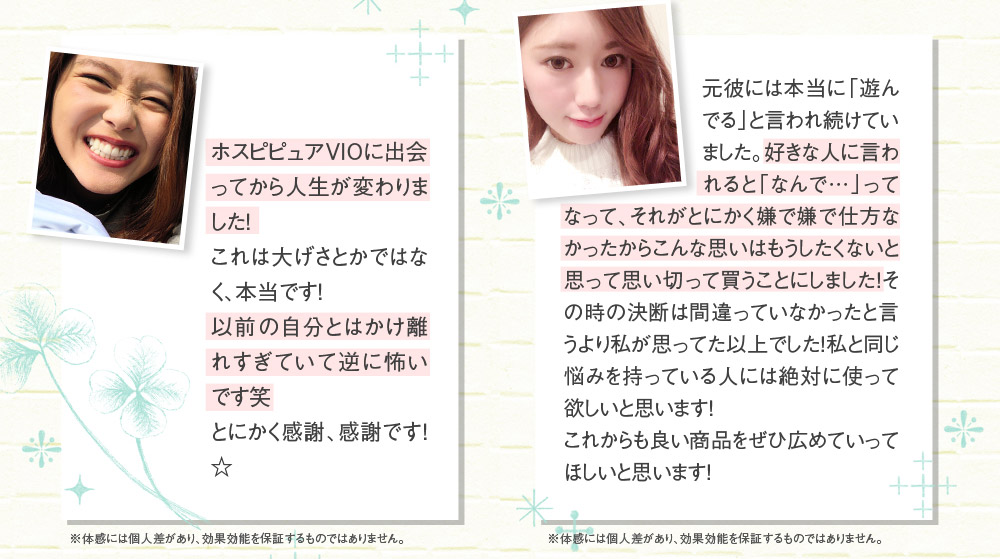 ホスピピュアVIOに出会
ってから人生が変わりま
した!
これは大げさとかではな
く、本当です!
以前の自分とはかけ離
れすぎていて逆に怖い
です笑
とにかく感謝、感謝です!
☆
※体感には個人差があり、効果効能を保証するものではありません。
元彼には本当に「遊ん
でる」と言われ続けてい
ました。好きな人に言わ
れると「なんで…」って
なって、それがとにかく嫌で嫌で仕方な
かったからこんな思いはもうしたくないと
思って思い切って買うことにしました!そ
の時の決断は間違っていなかったと言
うより私が思ってた以上でした!私と同じ
悩みを持っている人には絶対に使って
欲しいと思います!
これからも良い商品をぜひ広めていって
ほしいと思います!
※体感には個人差があり、効果効能を保証するものではありません。